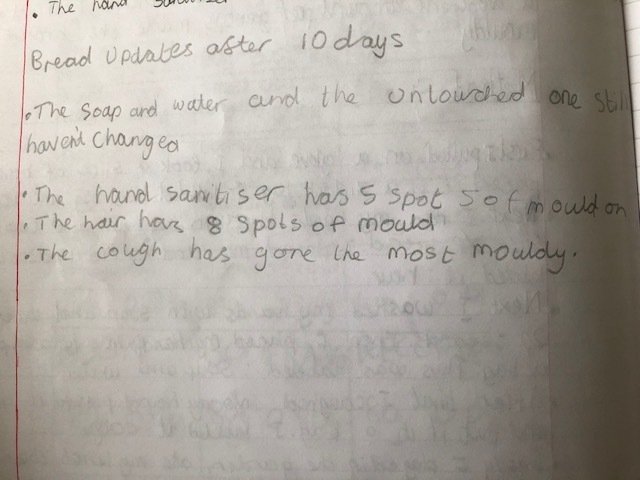 • The hand
Bread updates after 10 days
• The soap and water and the untouched one still
haven't changed
• The hand sanitiser has 5 spot s of mould on
• The hair has 8 spots of mould
• The cough has gone the most mouldy.